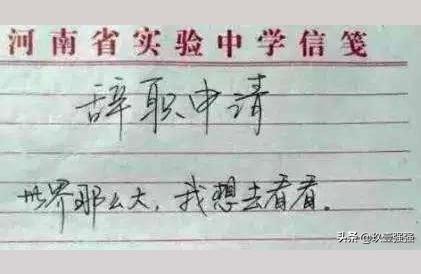 河南省实验中学信笺
辞职申请
世界那么大，我想去看看。
头条 @玖壹强强